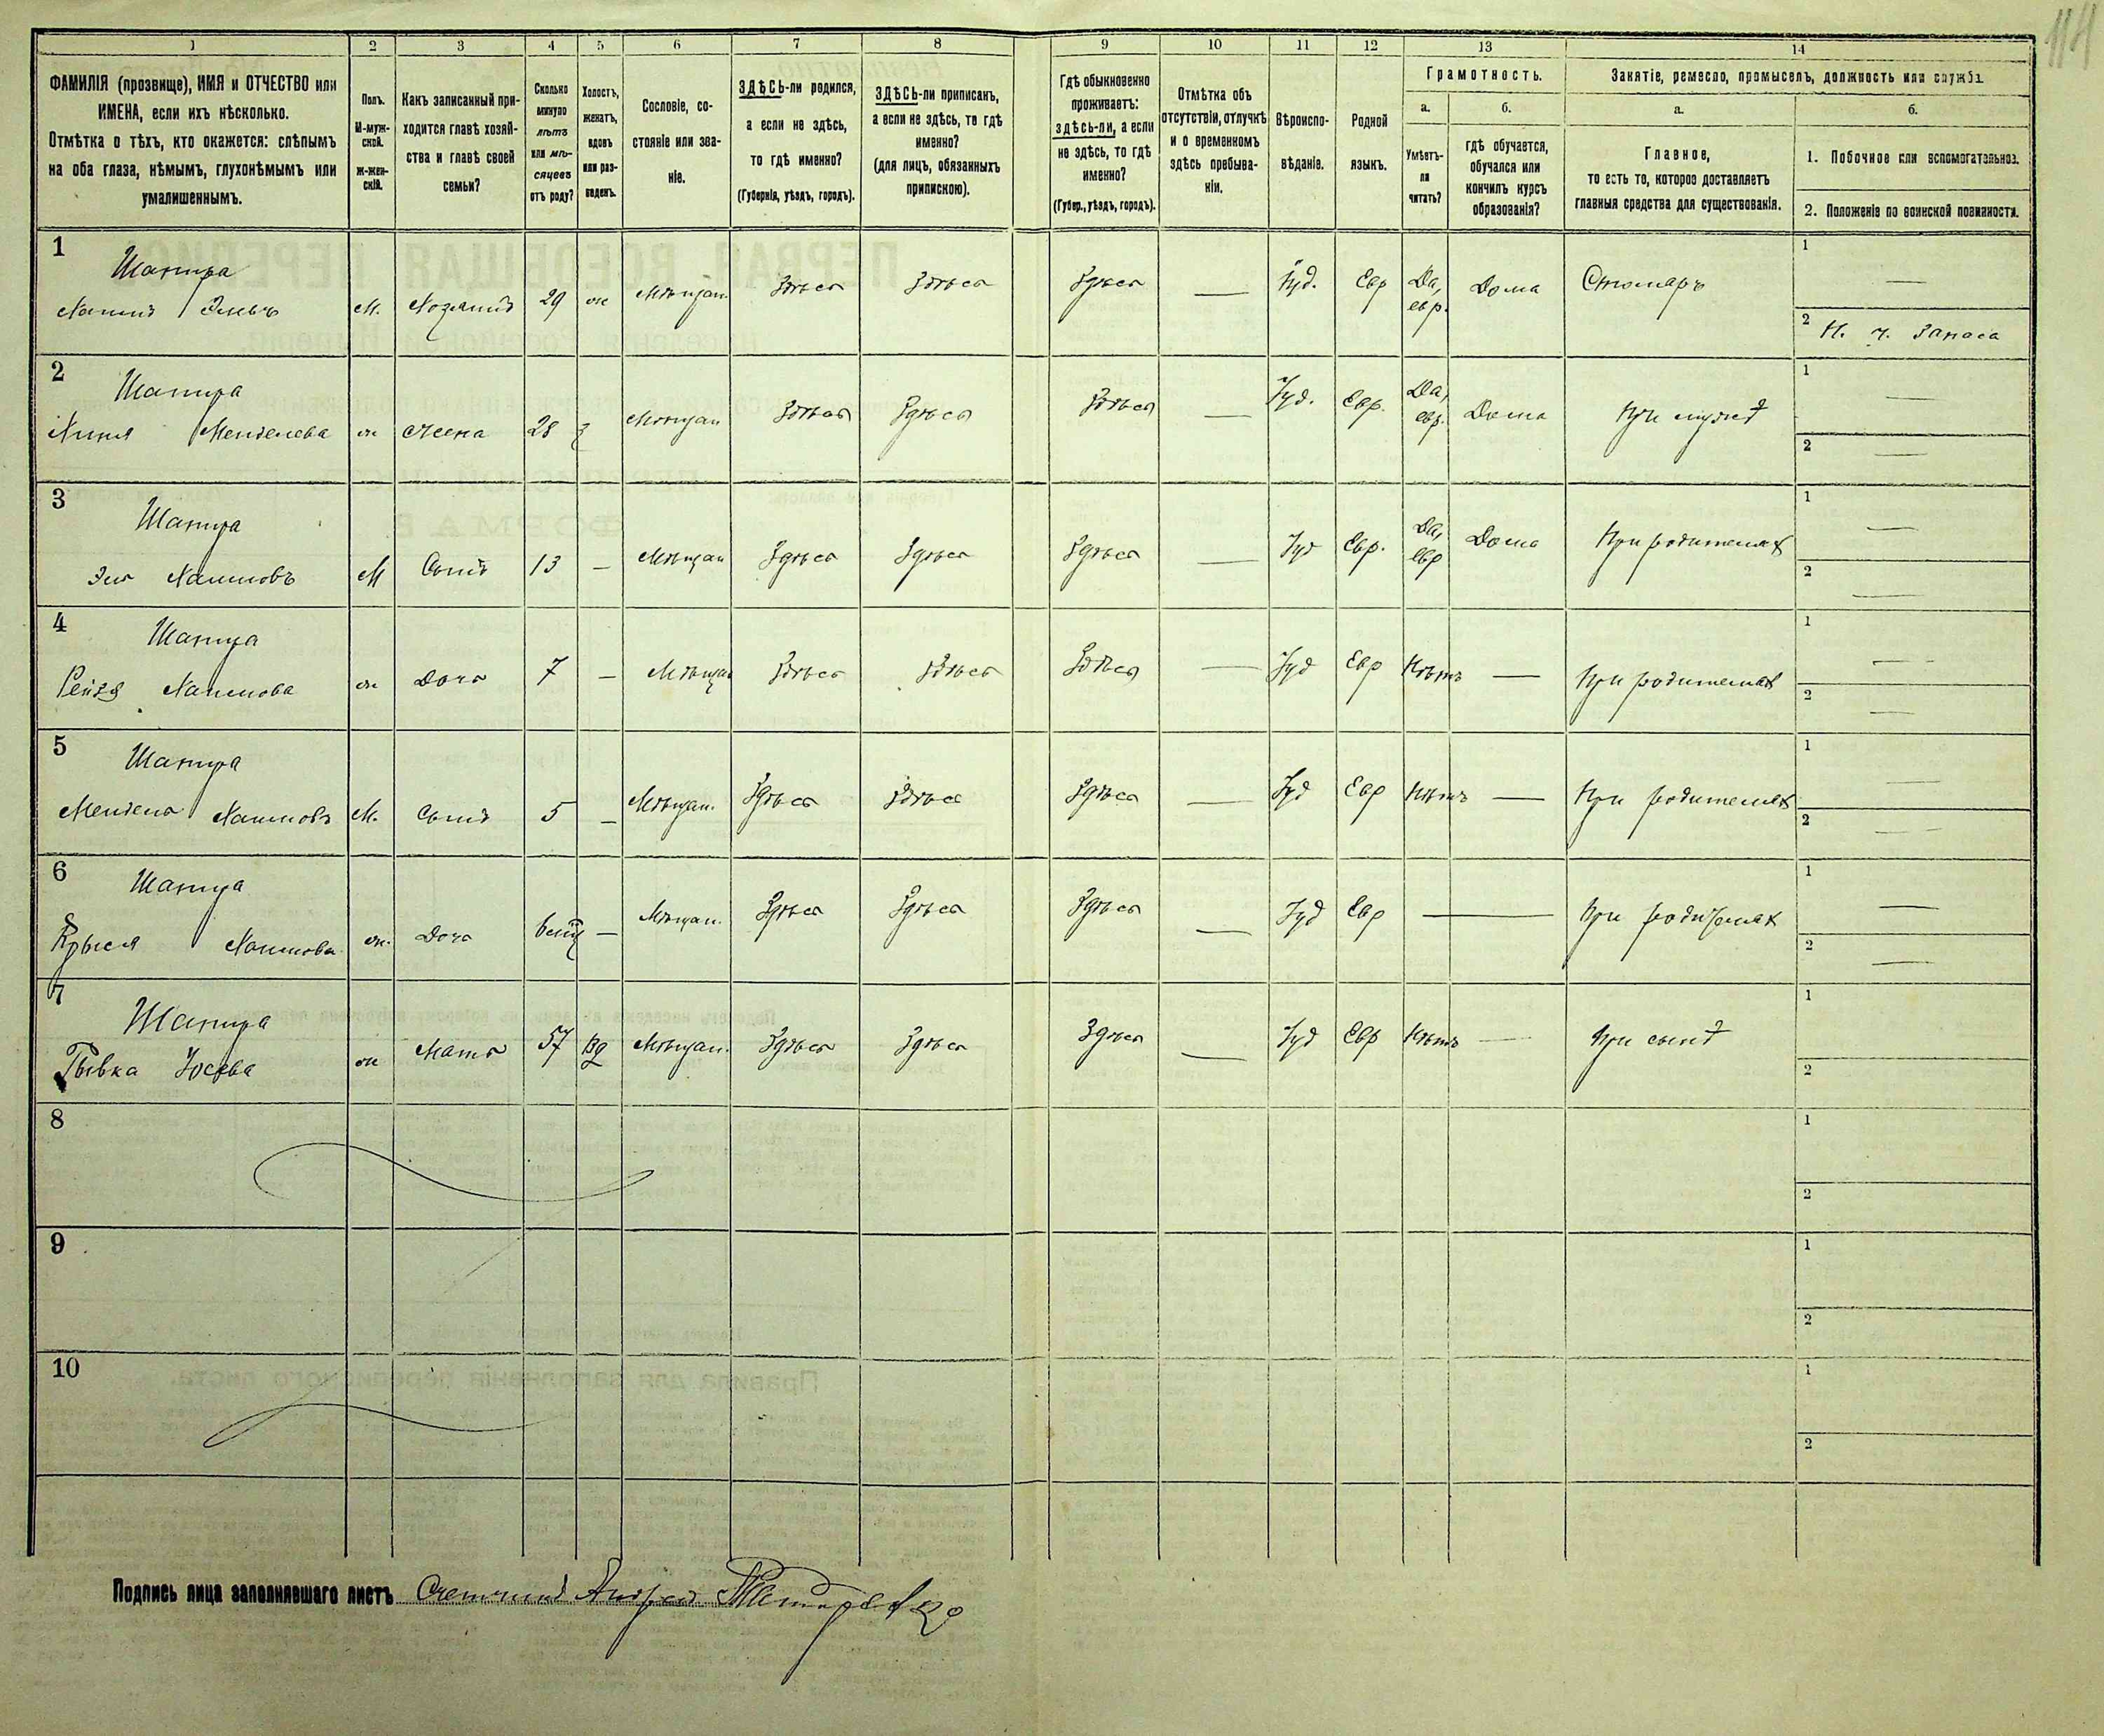 114
1 2 3 4 5 6 7 8 9 10 11 12 13 14
ФАМИЛІЯ (прозвище), ИМЯ и ОТЧЕСТВО или
ИМЕНА, если ихъ нѣсколько.
Отмѣтка о тѣхъ, кто окажется: слѣпымъ
на оба глаза, нѣмымъ, глухонѣмымъ или
умалишеннымъ.
Полъ.
М-муж-
ской.
Ж-жен-
скій.
Какъ записанный при-
ходится главѣ хозяй-
ства и главѣ своей
семьи?
Сколько
минуло
лѣтъ
или мѣ-
сяцевъ
отъ роду?
Холостъ,
женатъ,
вдовъ
или раз-
веденъ.
Сословіе, со-
стояніе или зва-
ніе.
ЗДѢСЬ-ли родился,
а если не здѣсь,
то гдѣ именно?
(Губернія, уѣздъ, городъ).
ЗДѢСЬ-ли приписанъ,
а если не здѣсь, то гдѣ
именно?
(для лицъ, обязанныхъ
припискою).
Гдѣ обыкновенно
проживаетъ:
здѣсь-ли, а если
не здѣсь, то гдѣ
именно?
(Губер., уѣздъ, городъ).
Отмѣтка объ
отсутствіи, отлучкѣ
и о временномъ
здѣсь пребыва-
ніи.
Вѣроиспо-
вѣданіе.
Родной
языкъ.
Грамотность.
а.
Умѣетъ-
ли
читать?
б.
гдѣ обучается,
обучался или
кончилъ курсъ
образованія?
Занятіе, ремесло, промыселъ, должность или служба.
а.
Главное,
то есть то, которое доставляетъ
главныя средства для существованія.
б.
1. Побочное или вспомогательное.
2. Положеніе по воинской повинности.
1
Шапира
Хаимъ
М. Хозяинъ 29 ж Мѣщан. Здѣсь Здѣсь Здѣсь — Іуд. Евр Да, евр. Дома Столяръ
1 —
2 Н. ч. Запаса
2
Шапира
Менделева
ж Жена 28 з Мѣщан Здѣсь Здѣсь Здѣсь — Іуд. Евр. Да, евр. Дома При мужѣ
1 —
2 —
3
Шапира
Эля Хаимовъ
М Сынъ 13 — Мѣщан Здѣсь Здѣсь Здѣсь — Іуд Евр. Да, евр Дома При родителях
1 —
2 —
4
Шапира
Рейзя Хаимова
ж Дочь 7 — Мѣщан Здѣсь Здѣсь Здѣсь — Іуд Евр Нѣтъ — При родителях
1 —
2 —
5
Шапира
Мендель Хаимовъ
М. Сынъ 5 — Мѣщан. Здѣсь Здѣсь Здѣсь — Іуд Евр Нѣтъ — При родителях
1 —
2 —
6
Шапира
Хаимова
ж. Дочь — Мѣщан. Здѣсь Здѣсь Здѣсь — Іуд Евр — При родителях
1 —
2 —
7
Шапира
Рывка
ж Мать 57 вд Мѣщан. Здѣсь Здѣсь Здѣсь — Іуд Евр Нѣтъ — При сынѣ
1
2
8
1
2
9
1
2
10
1
2
Подпись лица заполнявшаго листъ Счетчикъ Андрей